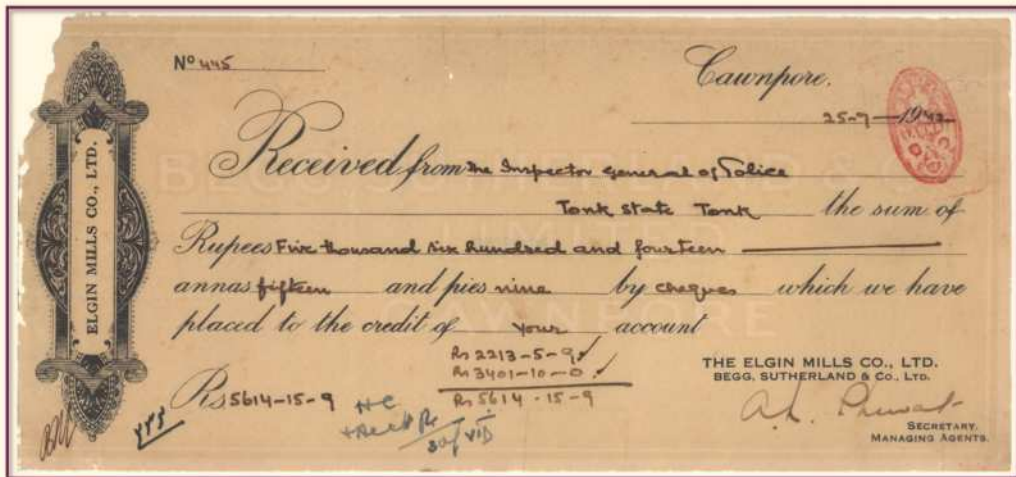 ELGIN MILLS CO., LTD.
No 445
Cawnpore,
25-7-1942
Received from The Inspector General of Police
Tonk State Tonk the sum of
Rupees Five thousand six hundred and fourteen
annas fifteen and pies nine by cheques which we have
placed to the credit of your account
Rs 2213-5-9
Rs 3401-10-0
Rs 5614-15-9
Rs 5614-15-9
THE ELGIN MILLS CO., LTD.
BEGG, SUTHERLAND & Co., LTD.
SECRETARY.
MANAGING AGENTS.
BEGG SUTHERLAND & CO
LIMITED
CAWNPORE